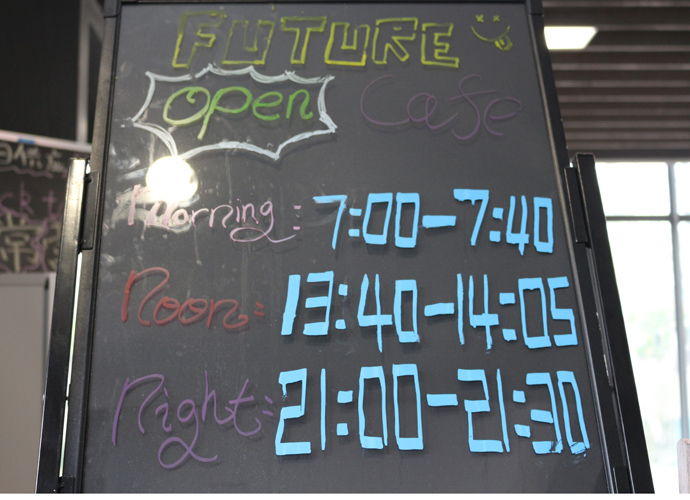 FUTURE
open Cafe
Morning: 7:00-7:40
Noon: 13:40-14:05
Night: 21:00-21:30